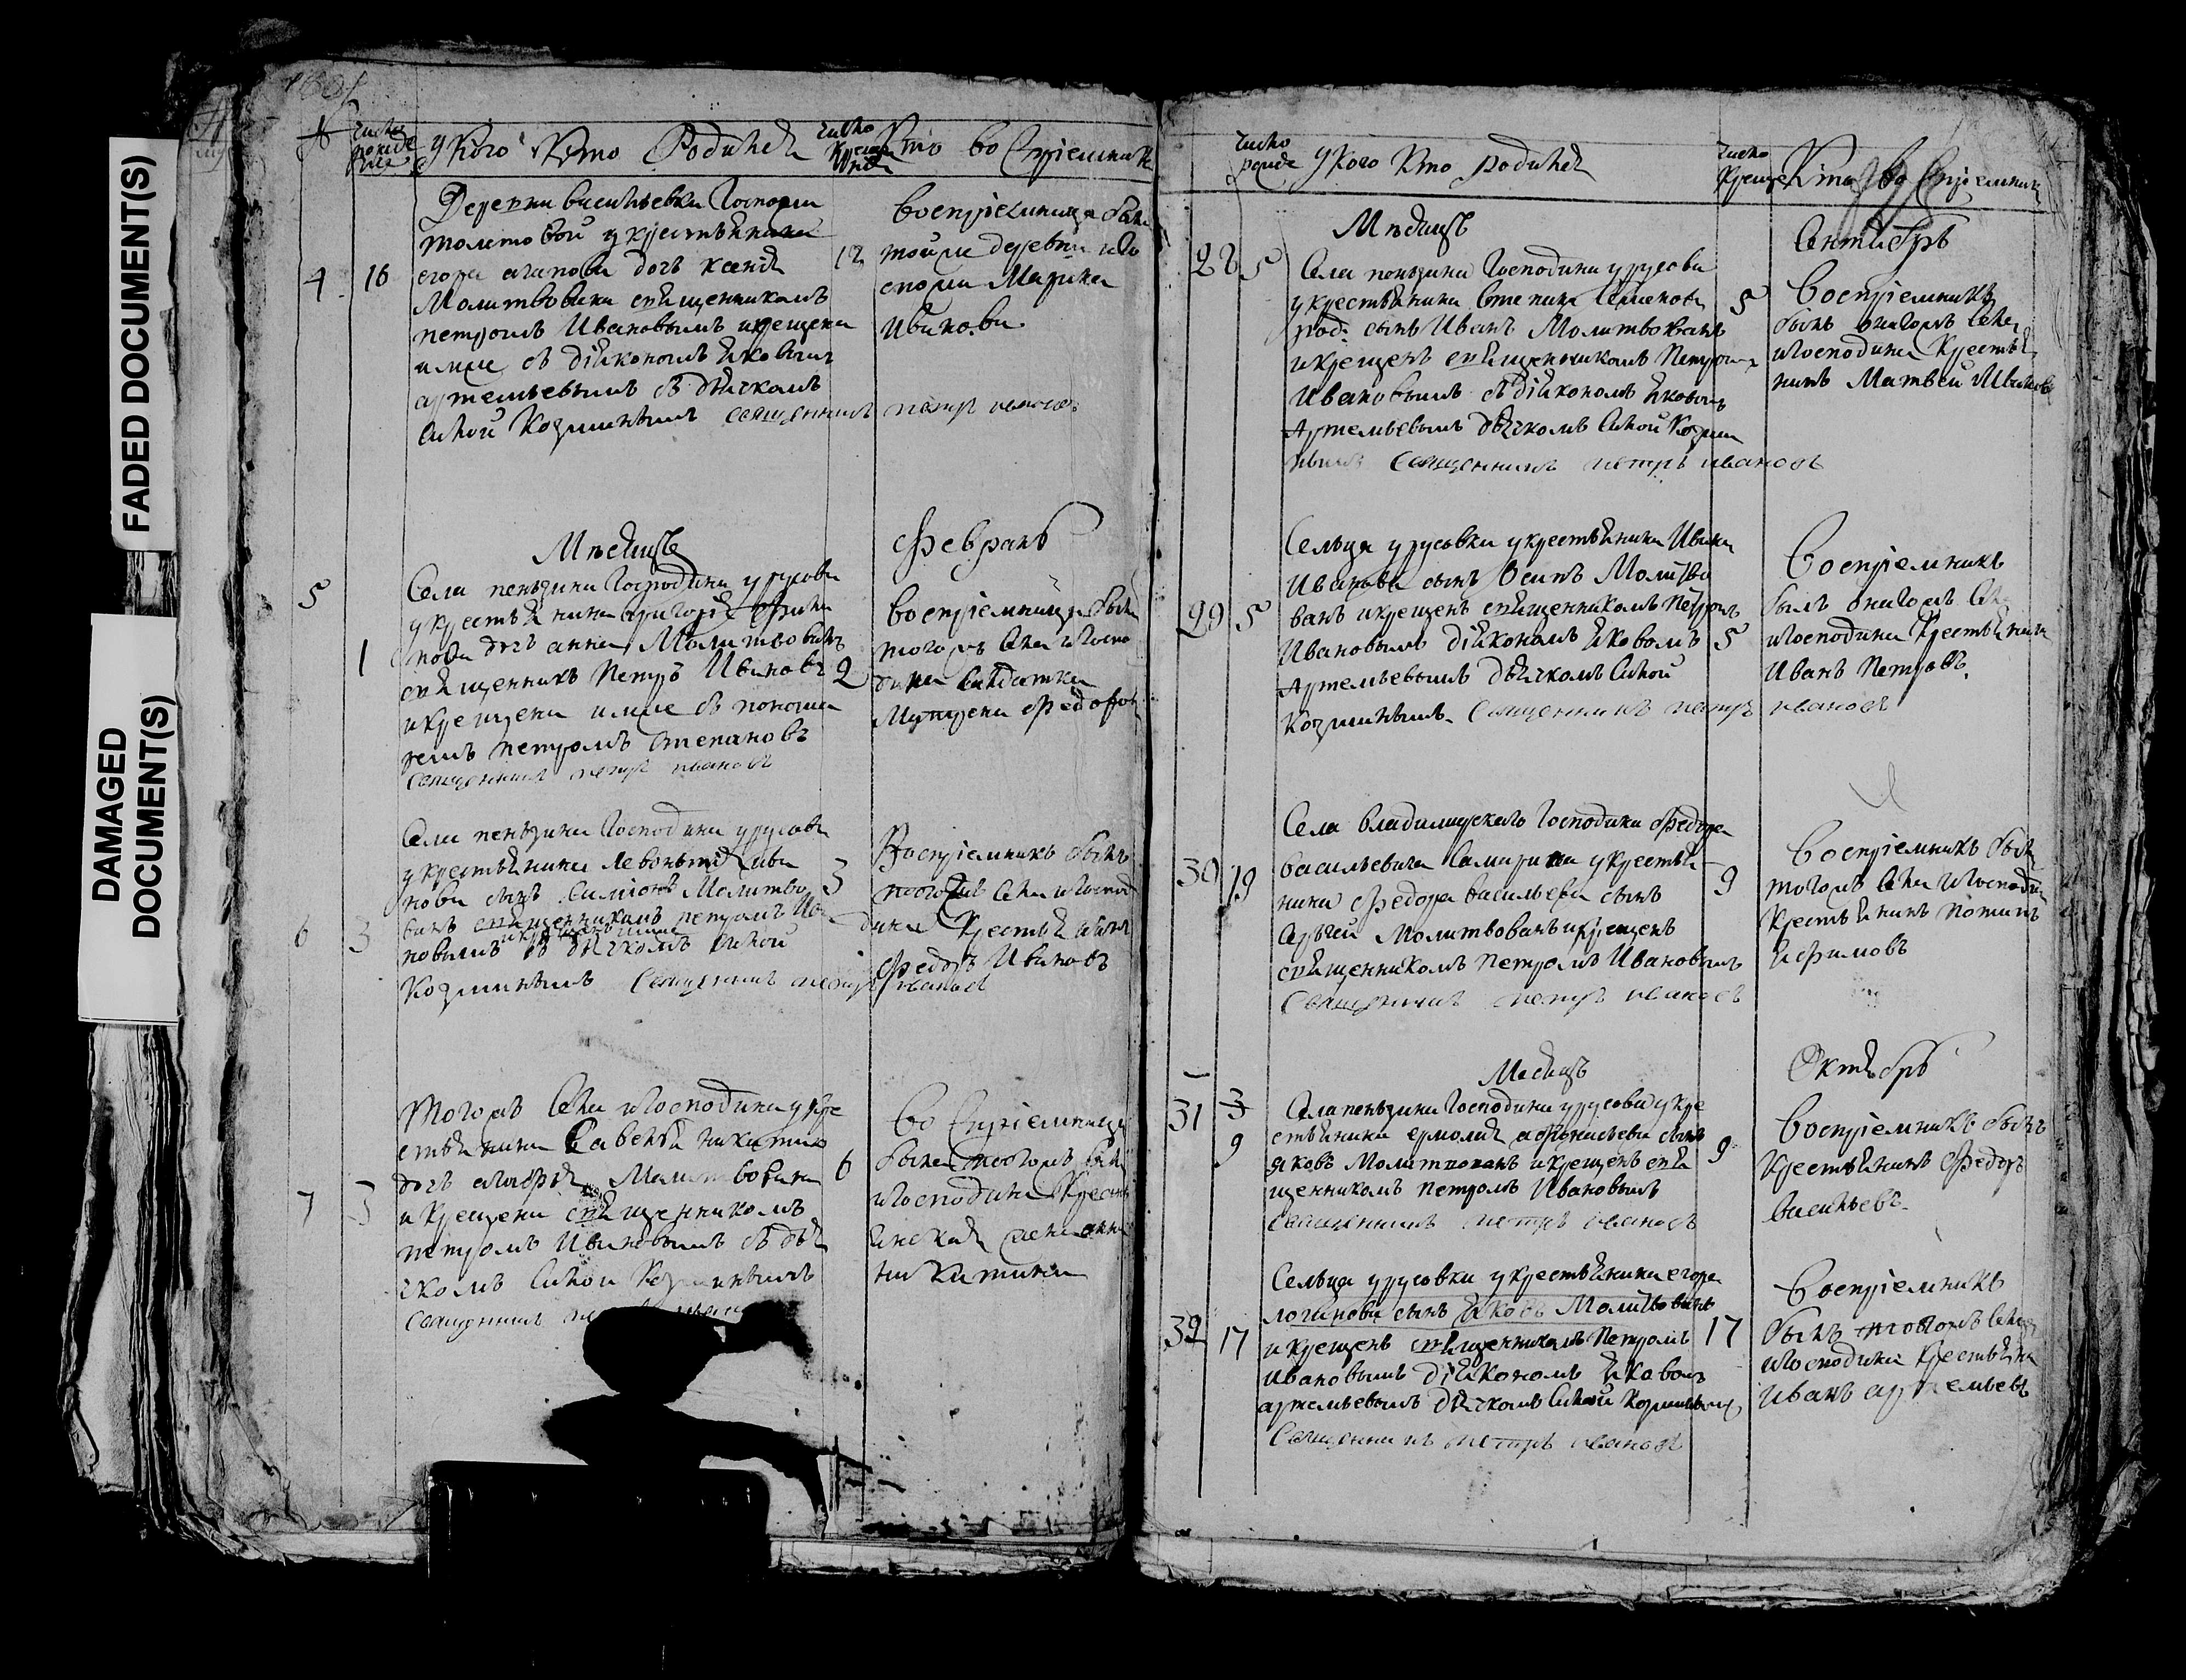 FADED DOCUMENT(S)
DAMAGED
DOCUMENT(S)
№ число рожде ния у кого кто родился число креще ния кто воспріемник
Деревни васильевки Госпожи
толстовой у крестьянина
4 16 егора агапова дочь ксенія 12
Молитвована священникомъ
петромъ Ивановымъ и крещена
имже съ діякономъ яковымъ
артемьевымъ съ дьячкомъ
Силой Козминымъ священникъ петръ ивановъ
воспріемница была
тойже деревни и го
спожи Марина
Иванова
Мѣсяцъ Февраль
5 Села пензина Господина урусова
у крестьянина григорія
1 дочь анна Молитвовалъ
священникъ Петръ Ивановъ 2
и крещена имже съ понома
ремъ петромъ степановъ
священникъ петръ ивановъ
воспріемница была
тогожъ села и госпо
дина солдатка
федорова
Села пензина Господина урусова
у крестьянина левонтія ива
нова сынъ симіонъ Молитво 3
ванъ священникомъ петромъ Ива
6 3 новымъ и крещенъ имже съ дьячкомъ силой
Козминымъ священникъ петръ ивановъ
Воспріемникъ былъ
тогожъ села и госпо
дина крестьянинъ
Федоръ Ивановъ
Тогожъ села и господина у кре
стьянина савелья никитина
дочь агафья Молитвована 6
7 3 и крещена священникомъ
петромъ Ивановымъ съ дья
чкомъ силой Козминымъ
священникъ
воспріемница
была тогожъ села
и господина крестья
янская жена анна
никитина
число рожде у кого кто родился число креще кто воспріемникъ
Мѣсяцъ Сентябрь
28 5 Села пензина Господина урусова
у крестьянина степана семенова 5
род: сынъ Иванъ Молитвованъ
и крещенъ священникомъ Петромъ
Ивановымъ съ діякономъ яковымъ
Артемьевымъ дьячкомъ Силой Козми
нымъ священникъ петръ ивановъ
Воспріемникъ
былъ оногожъ села
и господина крестья
нинъ Матвей Ивановъ
Сельца урусовки у крестьянина Ивана
Иванова сынъ Осипъ Молитво
29 5 ванъ и крещенъ священникомъ Петромъ
Ивановымъ діякономъ яковомъ 5
Артемьевымъ дьячкомъ Силой
козминымъ священникъ петръ ивановъ
Воспріемникъ
былъ оногожъ села
и господина крестьянинъ
Иванъ Петровъ.
Села владимирскаго Господина Федора
30 19 васильевича Самарина у крестья 9
нина Федора васильева сынъ
Сергей Молитвованъ и крещенъ
священникомъ Петромъ Ивановымъ
священникъ петръ ивановъ
Воспріемникъ былъ
тогожъ села и господина
крестьянинъ потапъ
ефимовъ
Месяцъ Октябрь
31 3 Села пензина Господина урусова у кре
9 стьянина ермолая афанасьева сынъ
яковъ Молитвованъ и крещенъ свя 9
щенникомъ петромъ Ивановымъ
священникъ петръ ивановъ
Воспріемникъ былъ
крестьянинъ Федоръ
васильевъ.
Сельца урусовки у крестьянина егора
логинова сынъ яковъ Молитвованъ
32 17 и крещенъ священникомъ Петромъ 17
ивановымъ діякономъ яковомъ
артемьевымъ дьячкомъ Силой Козминымъ
священникъ петръ ивановъ
Воспріемникъ
былъ тогожъ села
и господина крестьянинъ
иванъ артемьевъ